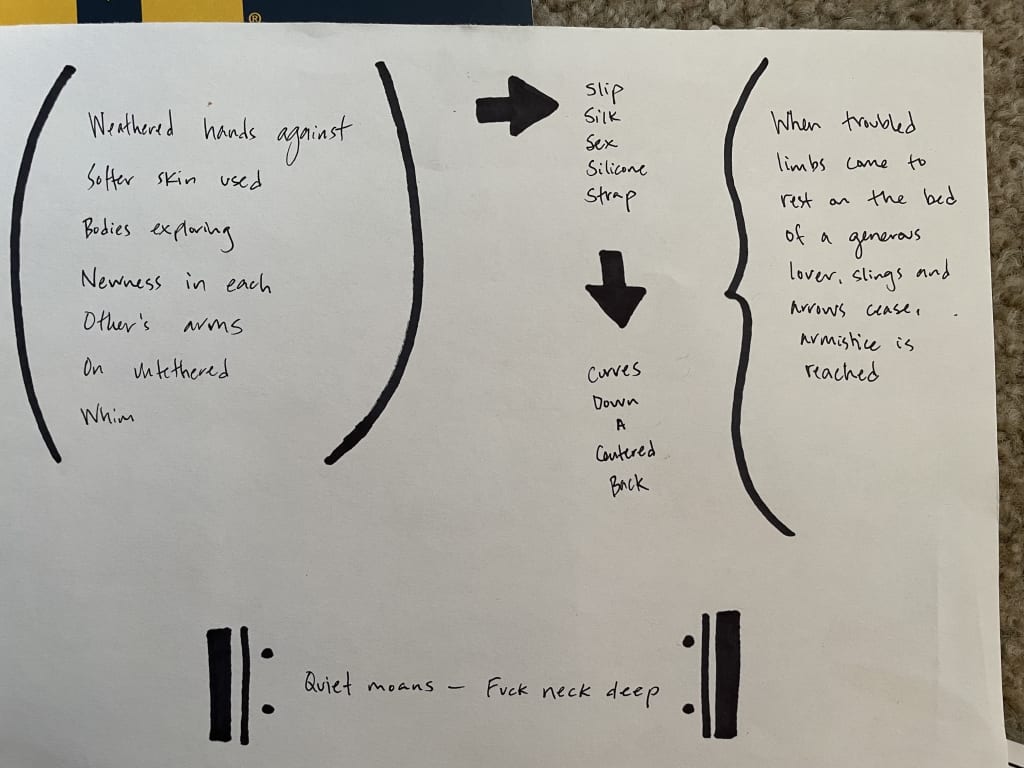 ®
Weathered hands against
Softer skin used
Bodies exploring
Newness in each
Other's arms
On untethered
Whim
Slip
Silk
Sex
Silicone
Strap
Curves
Down
A
Cantered
Back
When troubled
limbs come to
rest on the bed
of a generous
lover, slings and
arrows cease,
armistice is
reached
Quiet moans — Fuck neck deep